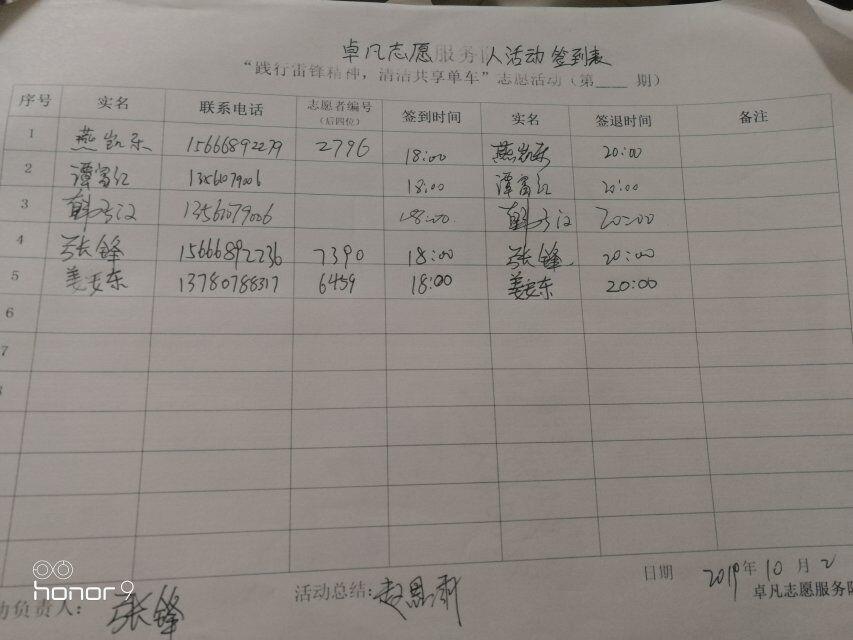 卓凡志愿服务队活动签到表
“践行雷锋精神，清洁共享单车”志愿活动（第____期）
序号 实名 联系电话 志愿者编号（后四位） 签到时间 实名 签退时间 备注
1 燕凯乐 15666892279 2796 18:00 燕凯乐 20:00
2 谭富红 1356079006 18:00 谭富红 20:00
3 13561079006 18:00 20:00
4 张锋 15666892236 7390 18:00 张锋 20:00
5 姜安东 13780788317 6459 18:00 姜安东 20:00
6
7
日期 2019年10月2
动负责人：张锋 活动总结：赵思雨 卓凡志愿服务队
honor 9